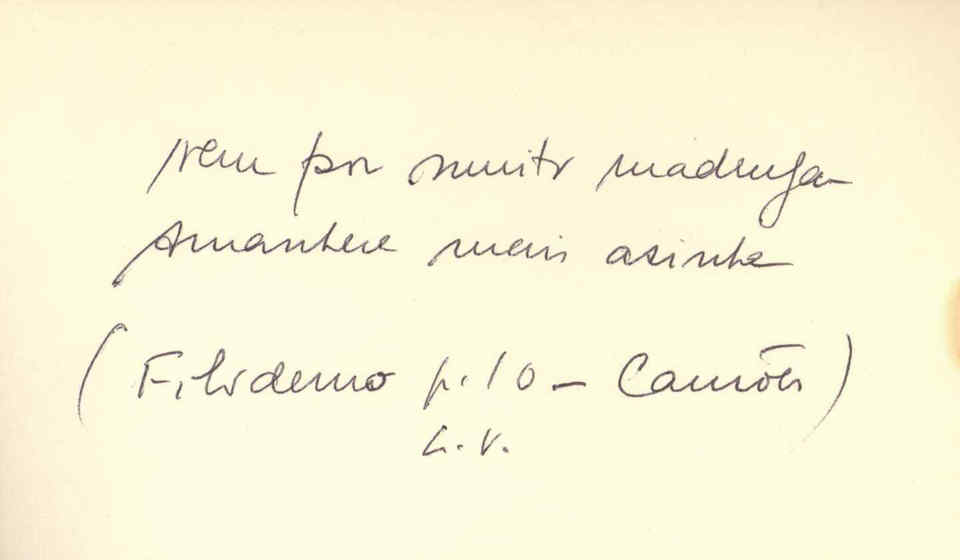 nem por muito madrugar
Amanhece mais asinha
(Filodemo p. 10 - Camões)
L. V.